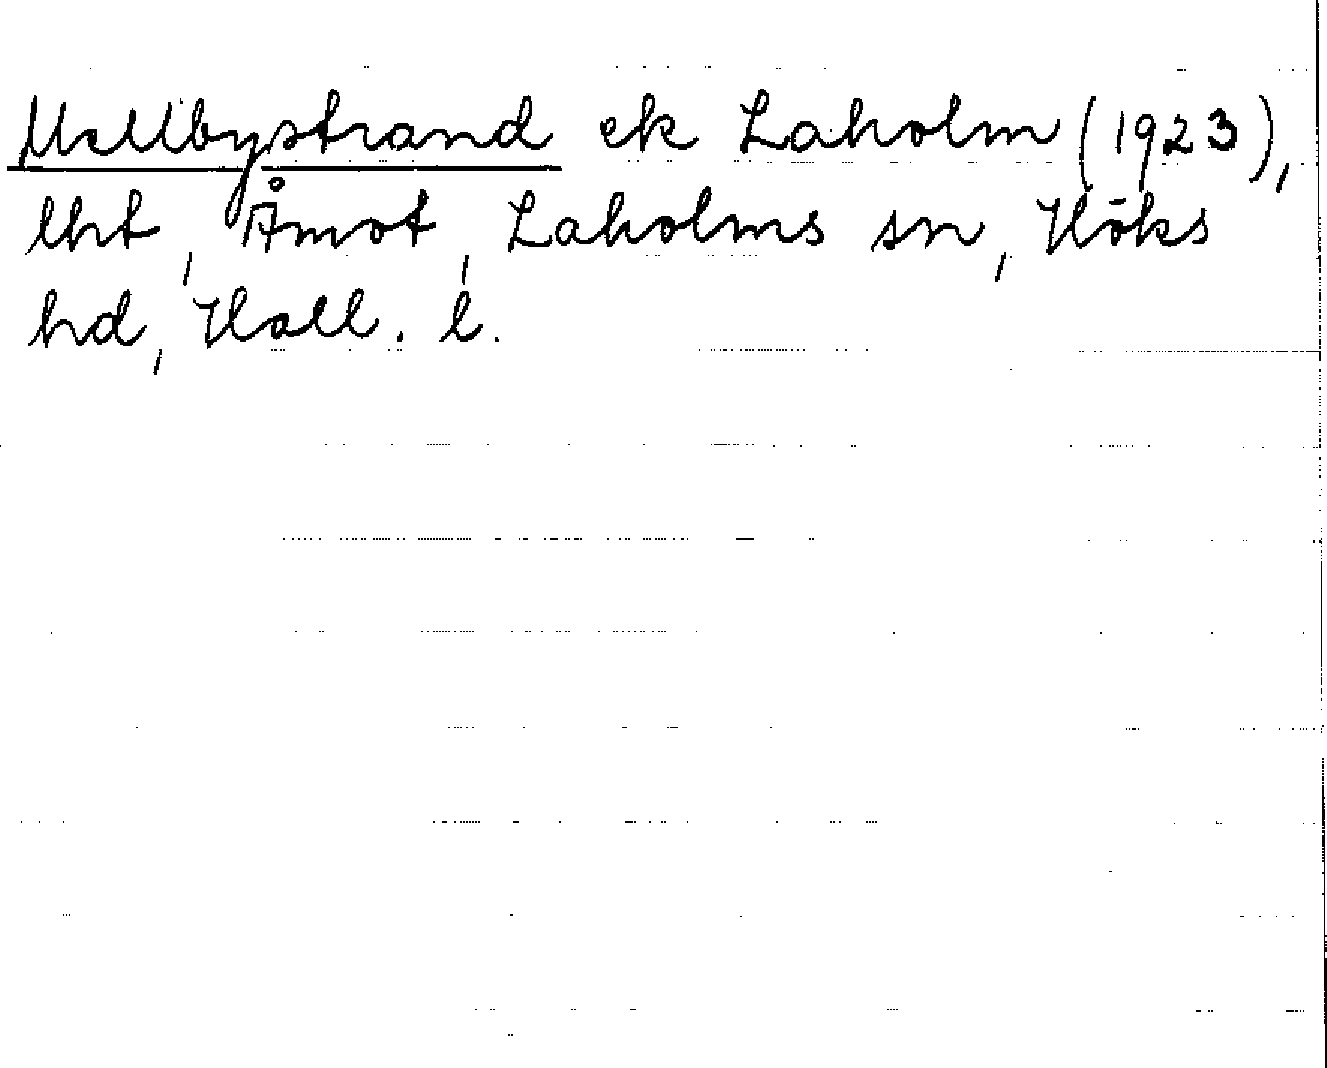 Mellbystrand ek Laholm (1923),
lht, Åmot, Laholms sn, Höks
hd, Hall. l.